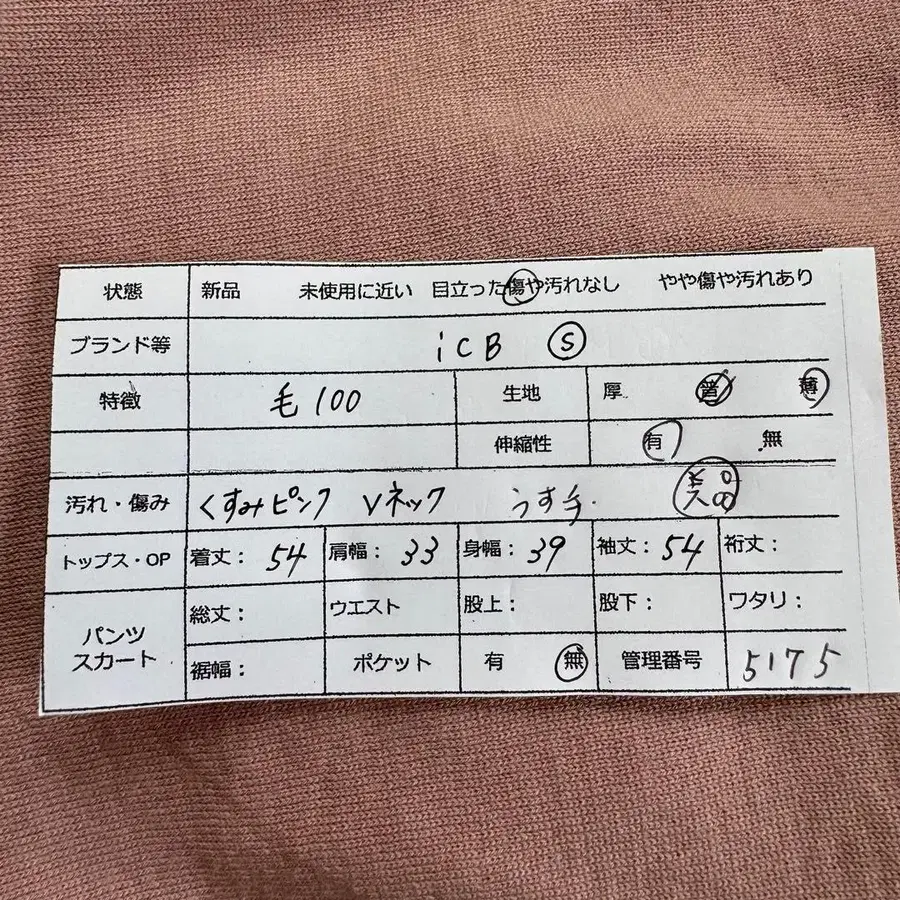 状態 新品 未使用に近い 目立った傷や汚れなし やや傷や汚れあり
ブランド等 iCB S
特徴 毛100 生地 厚 普 薄
伸縮性 有 無
汚れ・傷み くすみピンク Vネック うす手. 美品
トップス・OP 着丈: 54 肩幅: 33 身幅: 39 袖丈: 54 裄丈:
パンツ スカート 総丈: ウエスト 股上: 股下: ワタリ:
裾幅: ポケット 有 無 管理番号 5175